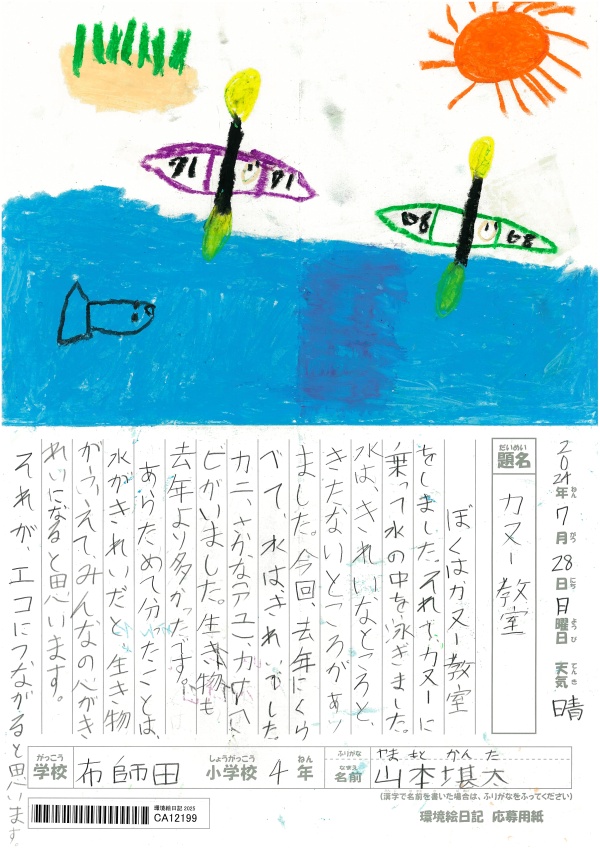 2024年7月28日日曜日 天気 晴
ねん がつ にち ようび てんき
だいめい
題名 カヌー教室
ぼくはカヌー教室
をしました。それでカヌーに
乗って水の中を泳ぎました。
水は、きれいなところと、
きたないところがあり
ました。今回、去年にくら
べて、水はきれいでした。
カニ、さかな(アユ)、カナヘ
ビがいました。生き物も
去年より多かったです。
あらためて分ったことは、
水がきれいだと、生き物
がふえて、みんなの心がき
れいになると思います。
それが、エコにつながると思います。
がっこう しょうがっこう ねん
学校 布師田 小学校 4年
ふりがな やまもと かんた
なまえ
名前 山本堪太
(漢字で名前を書いた場合は、ふりがなをふってください)
環境絵日記 応募用紙
環境絵日記 2025
CA12199